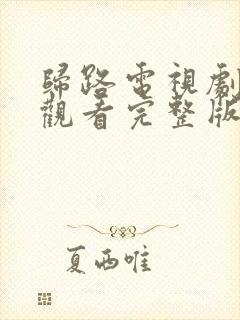 歸路電視劇
觀看完整版
夏西唯